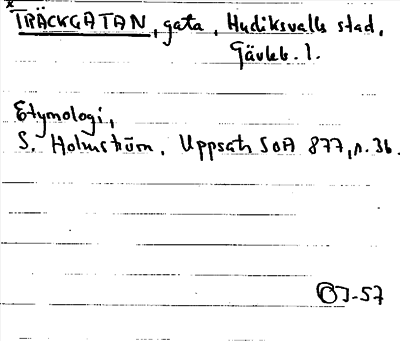 *TRÄCKGATAN, gata, Hudiksvalls stad,
Gävleb. l.
Etymologi,
S. Holmström, Uppsats SOA 877, s. 36.
OJ-57